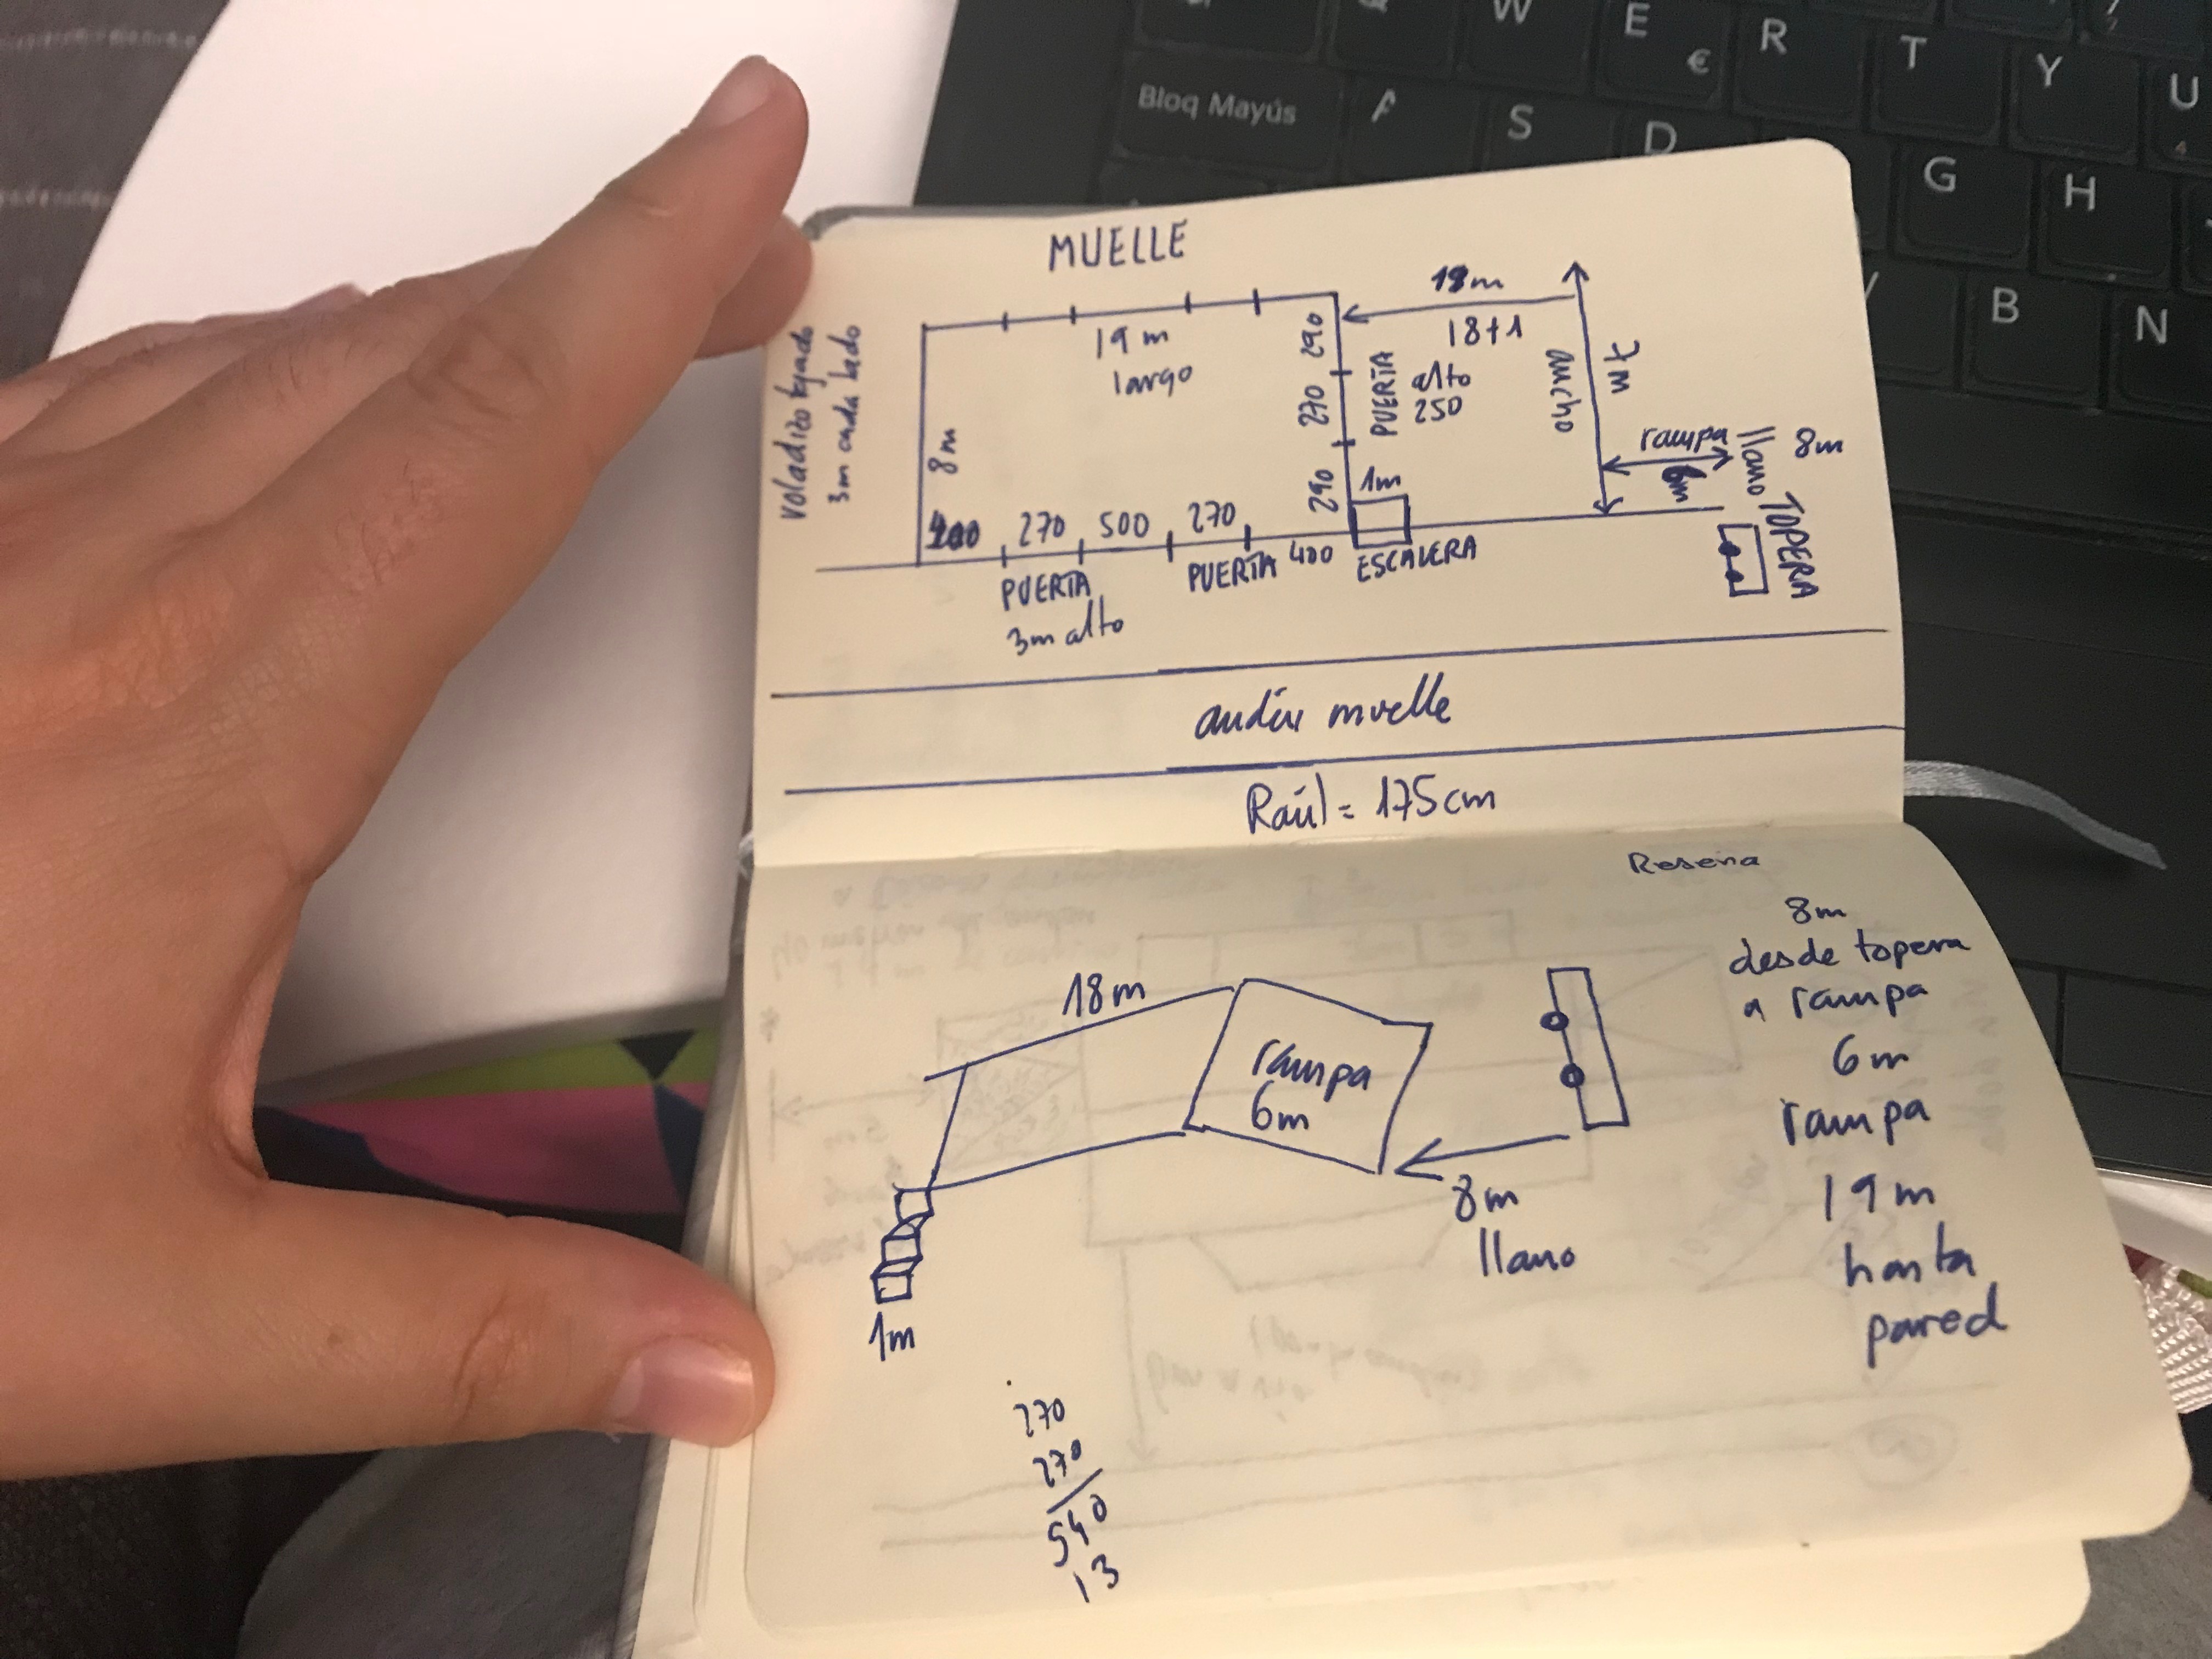 W
E
R
T
Y
U
€
Bloq Mayús
A
S
D
G
H
B
N
MUELLE
voladizo tejado
3m cada lado
19 m
largo
8m
290
270
290
PUERTA
alto
250
18m
18+1
ancho
7m
rampa
6m
llano
8m
TOPERA
1m
ESCALERA
400
270
500
270
400
PUERTA
3m alto
PUERTA
andén muelle
Raúl = 175cm
Reseña
8m
desde topera
a rampa
6m
rampa
19m
hasta
pared
18m
rampa
6m
8m
llano
1m
270
270
540
13